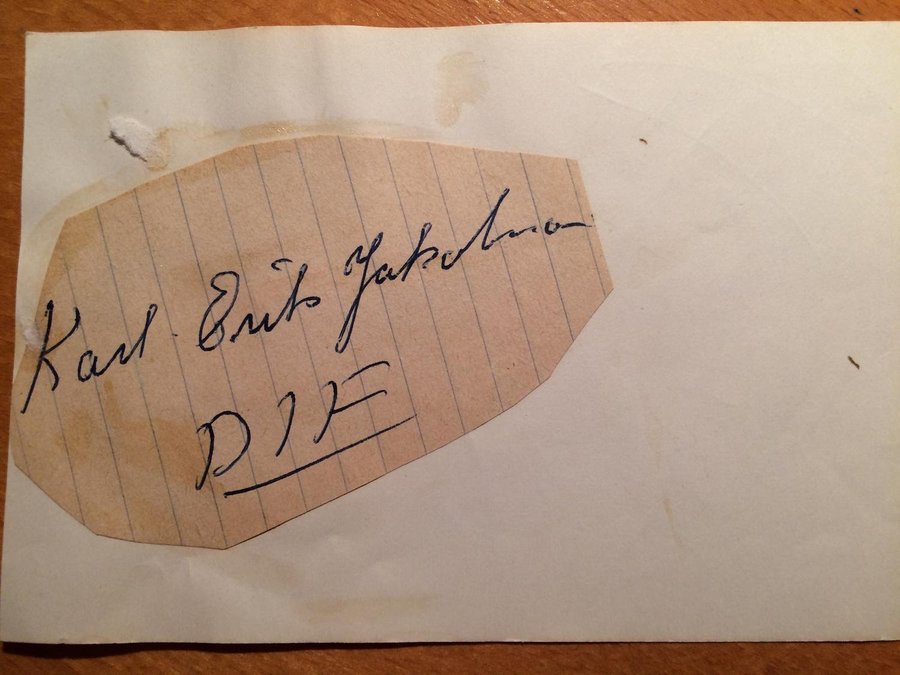 Karl. Erik Jakobsson
DIF